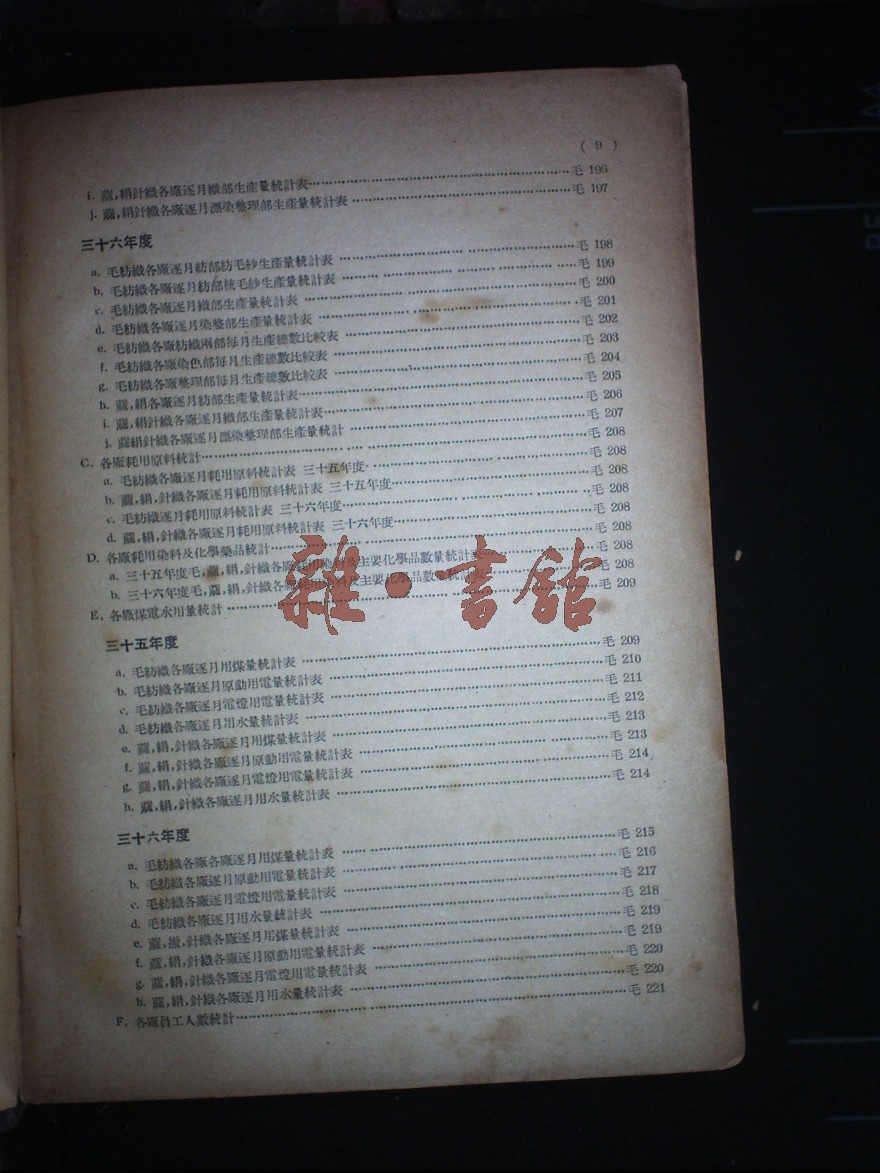 ( 9 )
i. 蔴,絹針織各廠逐月織部生產量統計表……毛 196
j. 蔴,絹針織各廠逐月漂染整理部生產量統計表……毛 197
三十六年度
a. 毛紡織各廠逐月紡部紡毛紗生產量統計表……毛 198
b. 毛紡織各廠逐月紡部梳毛紗生產量統計表……毛 199
c. 毛紡織各廠逐月織部生產量統計表……毛 200
d. 毛紡織各廠逐月染整部生產量統計表……毛 201
e. 毛紡織各廠紡織兩部每月生產總數比較表……毛 202
f. 毛紡織各廠染色部每月生產總數比較表……毛 203
g. 毛紡織各廠整理部每月生產總數比較表……毛 204
h. 蔴,絹各廠逐月紡部生產量統計表……毛 205
i. 蔴,絹針織各廠逐月織部生產量統計表……毛 206
j. 蔴絹針織各廠逐月漂染整理部生產量統計……毛 207
C. 各廠耗用原料統計……毛 208
a. 毛紡織各廠逐月耗用原料統計表 三十五年度……毛 208
b. 蔴,絹,針織各廠逐月耗用原料統計表 三十五年度……毛 208
c. 毛紡織逐月耗用原料統計表 三十六年度……毛 208
d. 蔴,絹,針織各廠逐月耗用原料統計表 三十六年度……毛 208
D. 各廠耗用染料及化學藥品統計……毛 208
a. 三十五年度毛,蔴,絹,針織各廠耗用染料及主要化學品數量統計表……毛 208
b. 三十六年度毛,蔴,絹,針織各廠耗用染料及主要化學品數量統計表……毛 208
E. 各廠煤電水用量統計……毛 209
三十五年度
a. 毛紡織各廠逐月用煤量統計表……毛 209
b. 毛紡織各廠逐月原動用電量統計表……毛 210
c. 毛紡織各廠逐月電燈用電量統計表……毛 211
d. 毛紡織各廠逐月用水量統計表……毛 212
e. 蔴,絹,針織各廠逐月用煤量統計表……毛 213
f. 蔴,絹,針織各廠逐月原動用電量統計表……毛 213
g. 蔴,絹,針織各廠逐月電燈用電量統計表……毛 214
h. 蔴,絹,針織各廠逐月用水量統計表……毛 214
三十六年度
a. 毛紡織各廠各廠逐月用煤量統計表……毛 215
b. 毛紡織各廠逐月原動用電量統計表……毛 216
c. 毛紡織各廠逐月電燈用電量統計表……毛 217
d. 毛紡織各廠逐月用水量統計表……毛 218
e. 蔴,緞,針織各廠逐月用煤量統計表……毛 219
f. 蔴,絹,針織各廠逐月原動用電量統計表……毛 219
g. 蔴,絹,針織各廠逐月電燈用電量統計表……毛 220
h. 蔴,絹,針織各廠逐月用水量統計表……毛 220
F. 各廠員工人數統計……毛 221
雜·書館